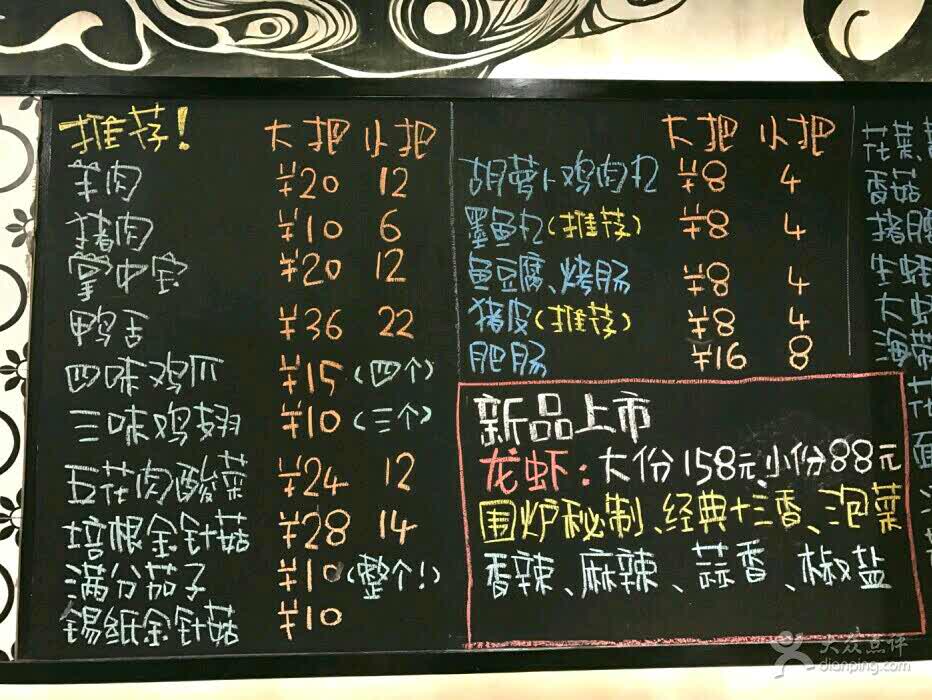 推荐! 大把 小把
羊肉 ¥20 12
猪肉 ¥10 6
掌中宝 ¥20 12
鸭舌 ¥36 22
四味鸡爪 ¥15 (四个)
三味鸡翅 ¥10 (三个)
五花肉酸菜 ¥24 12
培根金针菇 ¥28 14
满分茄子 ¥10 (整个!)
锡纸金针菇 ¥10
大把 小把
胡萝卜鸡肉丸 ¥8 4
墨鱼丸(推荐) ¥8 4
鱼豆腐、烤肠 ¥8 4
猪皮(推荐) ¥8 4
肥肠 ¥16 8
新品上市
龙虾:大份158元、小份88元
围炉秘制、经典十三香、泡菜
香辣、麻辣、蒜香、椒盐
花菜、
香菇
猪腰
生蚝
大虾
海带
花
面
大众点评
dianping.com